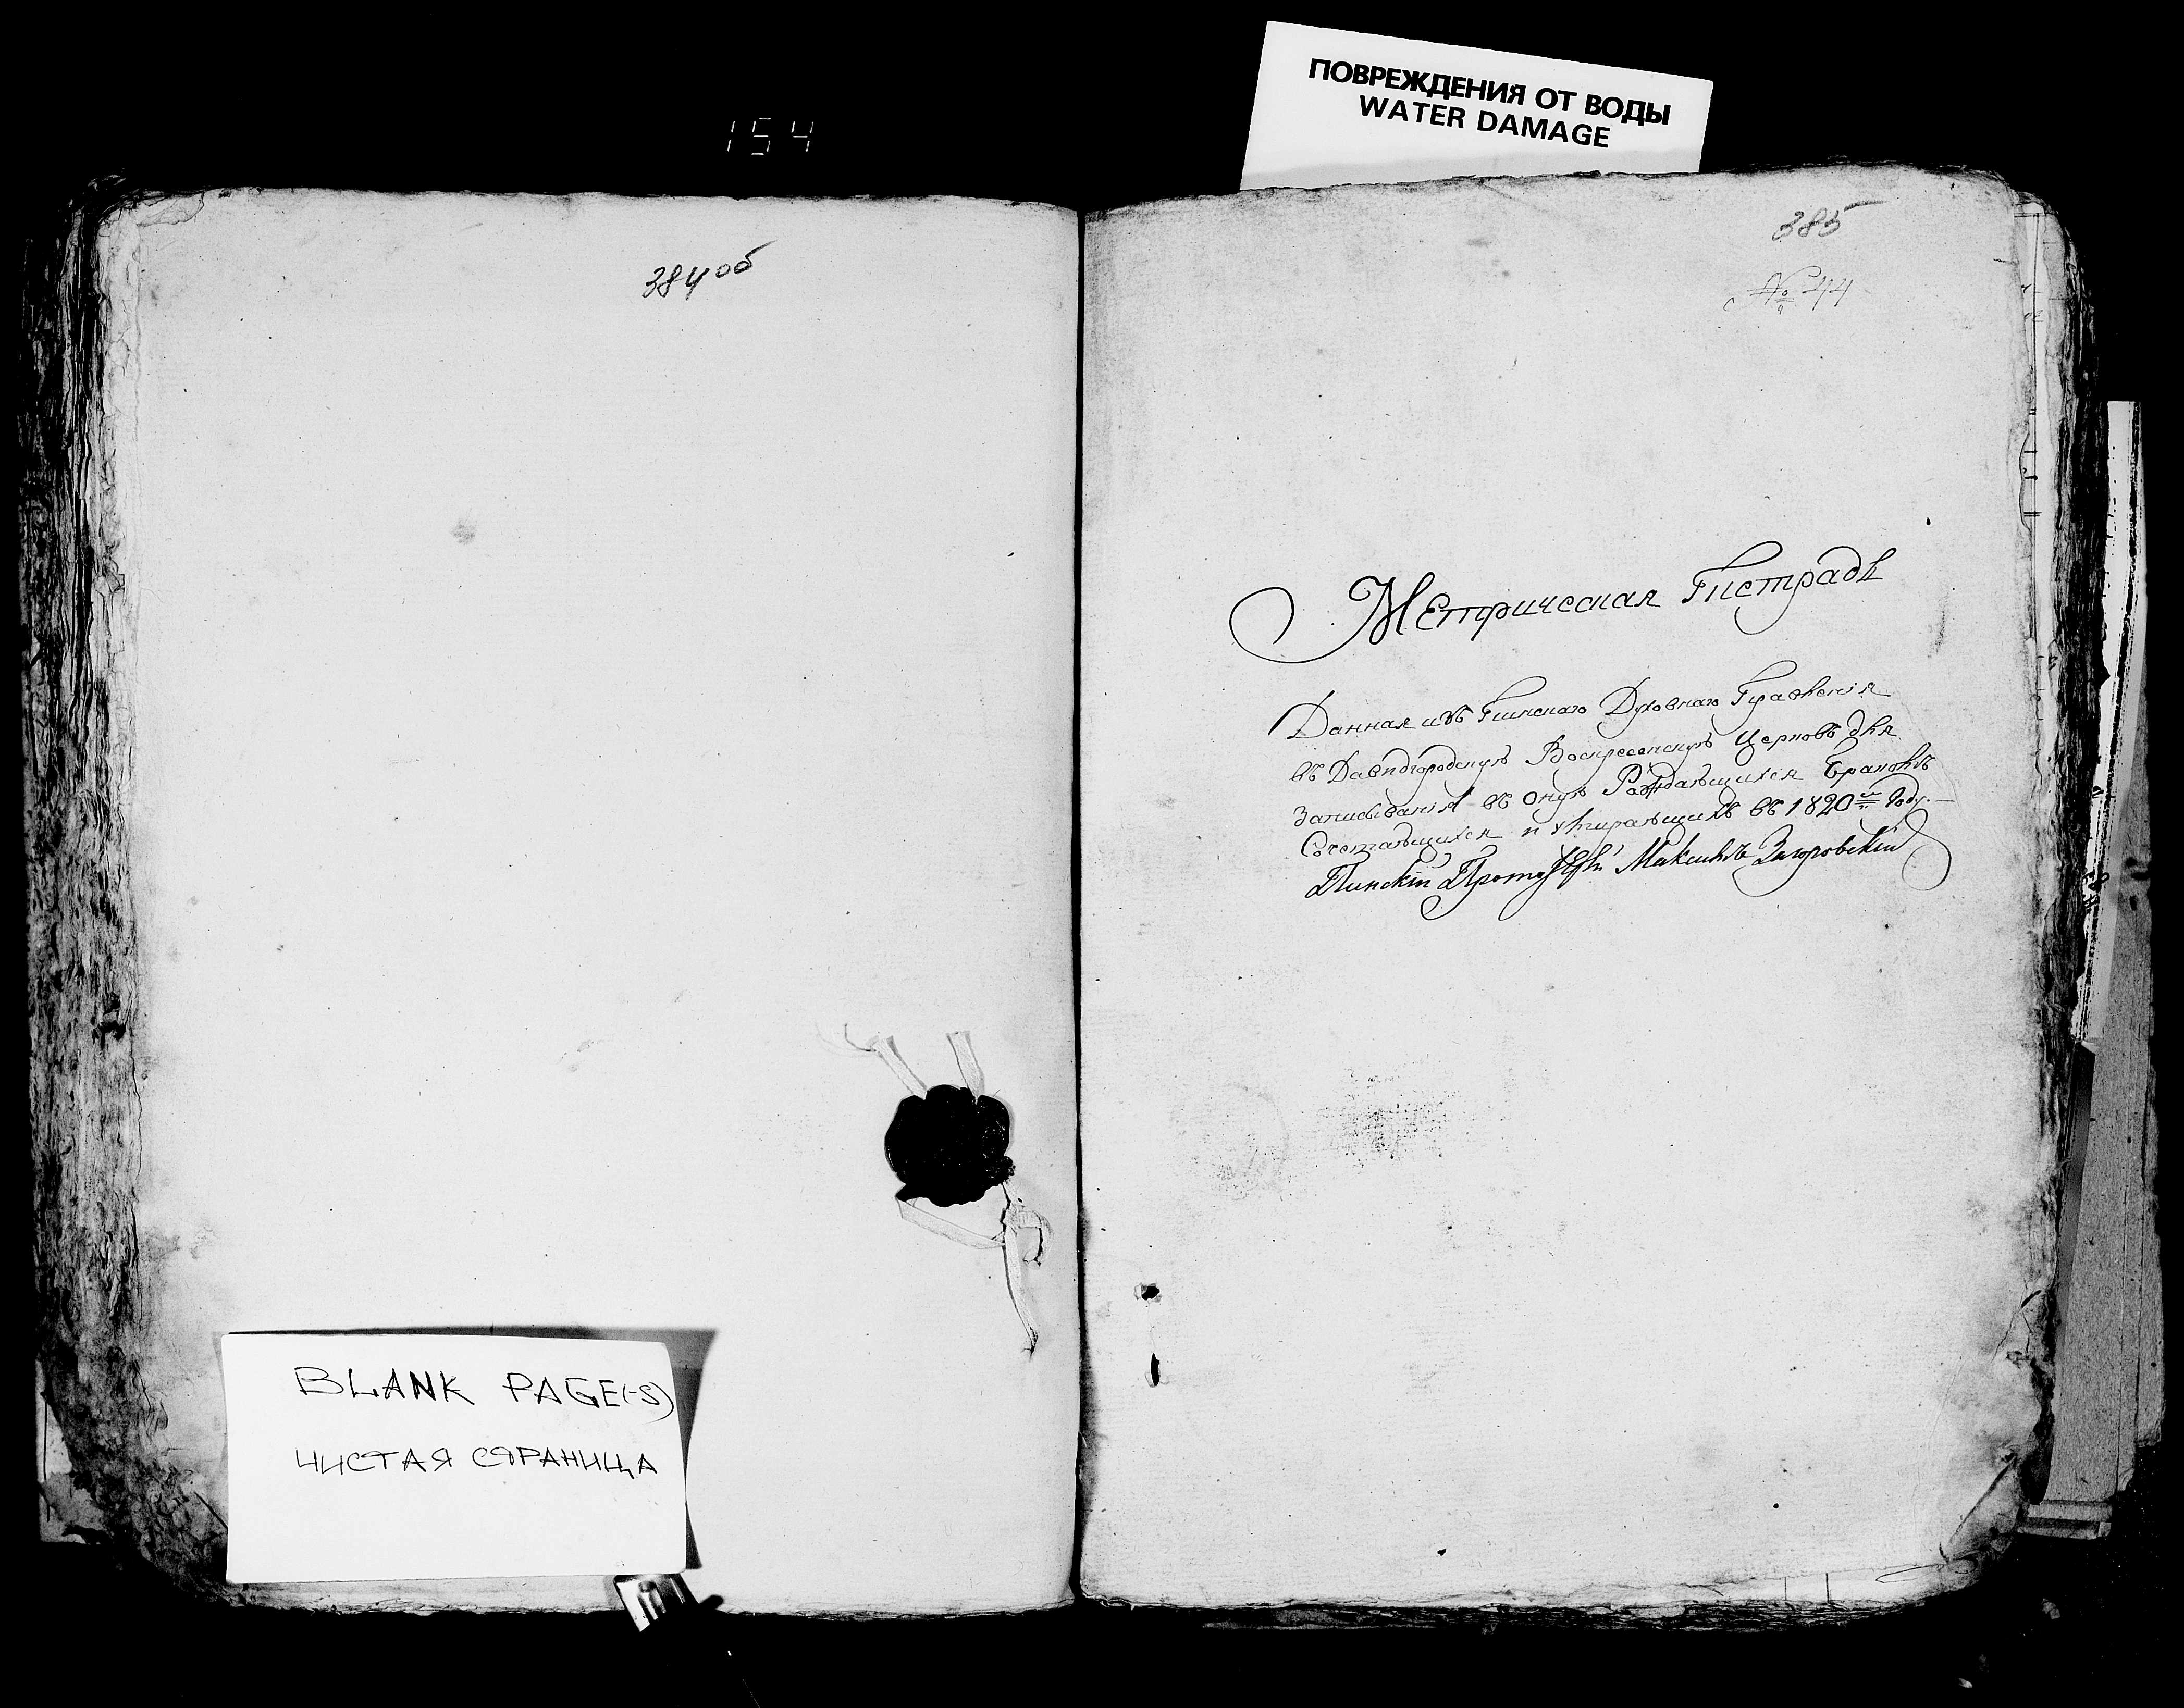 ПОВРЕЖДЕНИЯ ОТ ВОДЫ
WATER DAMAGE
154
384 об
385
№ 44
Метрическая Тетрадь
Данная изъ Пинскаго Духовнаго Правленія
въ Давидгородскую Воскресенскую Церковь для
Записыванія въ оную Раждающихся Браковъ
Сочетающихся и умирающихъ въ 1820 м Году.
Пинскій Максимъ Загоровскій
BLANK PAGE(-S)
ЧИСТАЯ СТРАНИЦА